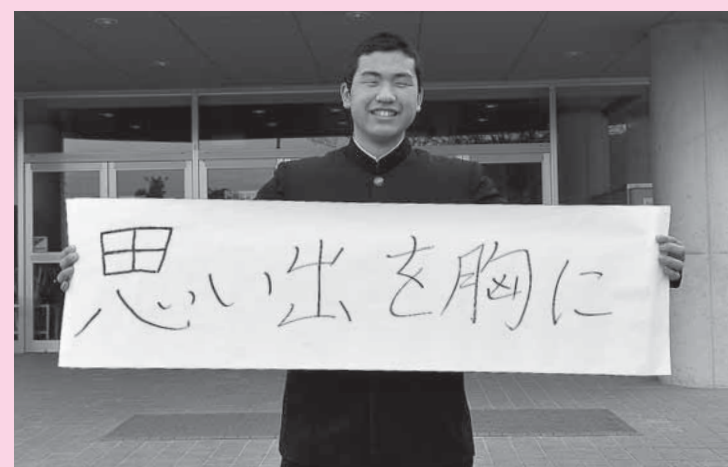 思い出を胸に